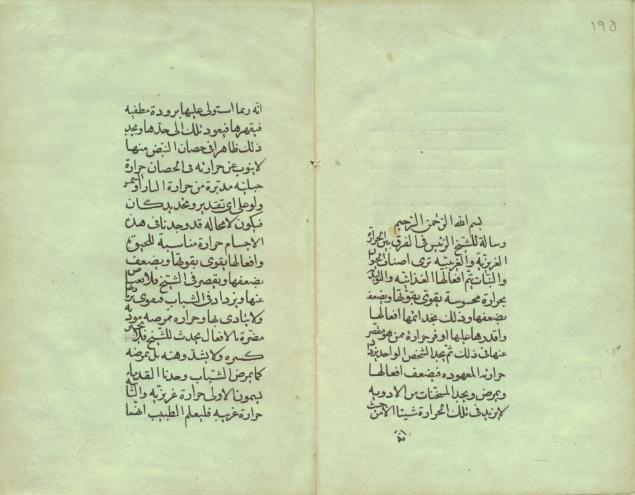 ١٩٥
بسم الله الرحمن الرحيم
رسالة للشيخ الرئيس فى الفرق بين الحرارة
الغريزية والغريبه ترى اصناف الحيوان
والنبات يتم افعالها الغذائيه والتوليد
بحرارة محسوسة يقوى بقوتها ويضعف
بضعفها وذلك يجد اتمها افعالها
واقدرها عليها اوفر حرارة ممن هو مقصر
عنها فى ذلك ثم يجد الشخص الواحد يزيد
حرارته المعهوده فيضعف افعالها
ويمرض ويجد المسخنات من الادويه
لا يزيد فى تلك الحرارة شيئا الا من حيث
انه
انه ربما استولى عليها برودة مطفيه
فيقهرها فيعود تلك الى حدها ويجد
ذلك ظاهرا فى حصان النبض منها
لا ينوب عن حرارته فى الحصان حرارة
جبلته مدبرة من حرارة النار او
ولو على اى تقدير وتحديد كان
فيكون لا محاله قد وجدنا فى هذه
الاجسام حرارة مناسبة للحيوة
وافعالها يقوى بقوتها ويضعف
بضعفها ويقصر فى الشيخ فلا
عنها ويزداد فى الشباب فيقوى
ولا يتأذى بها وحراره ممرضه
مضرة بالافعال يحدث للشيخ فلا
كسره ولا يشد وهنه بل يمرضه
كما يمرض الشباب وجدنا القدماء
يسمون الاولى حرارة غريزيه والثانية
حرارة غريبه فليعلم الطبيب انهما